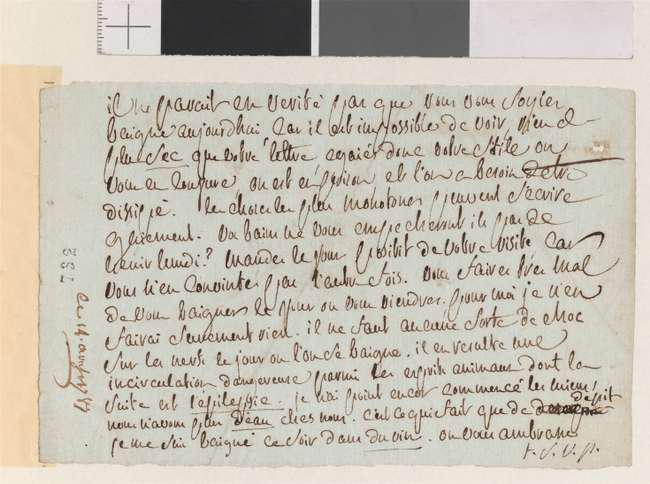 il ne parait en verité pas que vous vous soyier
baigne aujourdhui car il est impossible de voir rien de
plus sec que votre lettre egaiér donc votre stile on
vous en conjure, on est en prison et l'on a besoin detre
dissipé. les choses les plus monotones peuvent s'ecrire
gaiement. vos bains ne vous empecheront ils pas de
venir lundi? mander le jour positif de votre visite car
vous n'en convintes pas l'autre fois. vous faires tres mal
de vous baigner le jour ou vous viendres. pour moi je n'en
fairai surement rien. il ne faut aucune sorte de choc
sur les nerfs le jour ou l'on se baigne. il en resulte une
incirculation dangereuse parmi les esprits animaux dont la
suite est l'epilepsie. je n'ai point encor commencé les miens,
nous n'avons plus d'eau ches nous. c'est ce qui fait que de depit
je me suis baigné ce soir dans du vin. on vous embrasse
t. s. v. p.
ce 14
337